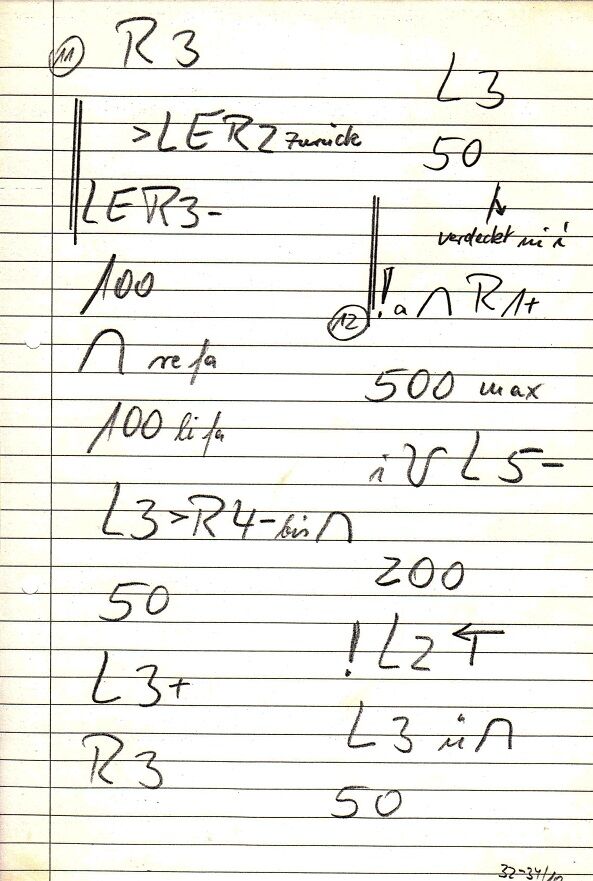 11 R 3
>LER2 zurück
LER3-
100
∩ re fa
100 li fa
L3>R4- bis ∩
50
L3+
R3
L3
50
verdeckt
12 !a ∩ R1+
500 max
i V L5-
200
! L2 ←T
L3 ü ∩
50
32-34/12